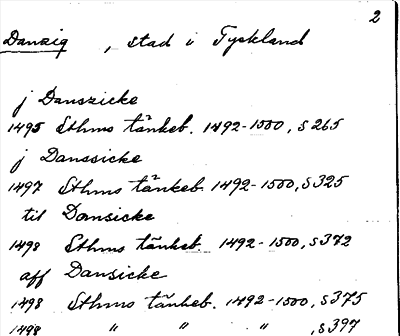 2
Danzig, stad i Tyskland
j Danszicke
1495 Sthms tänkeb. 1492-1500, s 265
j Danssicke
1497 Sthms tänkeb. 1492-1500, s 325
til Dansicke
1498 Sthms tänkeb. 1492-1500, s 372
aff Dansicke
1498 Sthms tänkeb. 1492-1500, s 375
1498 " " " , s 397